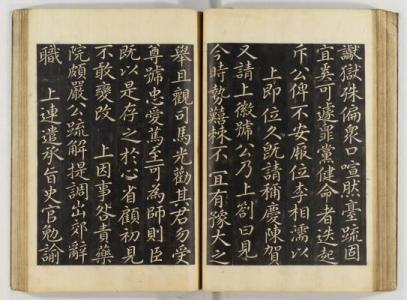 讞獄殊偏衆口喧然臺疏固
宜奚可遽罪黨健命者迭起
斥公俾不安厥位李相濡以
上即位久旣請稱慶陳賀
又請上徽號公乃上劄曰見
今時勢艱棘不宜有豫大之
舉且觀司馬光勸其君勿受
尊號忠愛篤至可為師則臣
旣以是存之於心省顧初見
不敢變改 上因事咎責藥
院頗嚴公疏解提調出郊辭
職 上連遣承旨史官勉諭